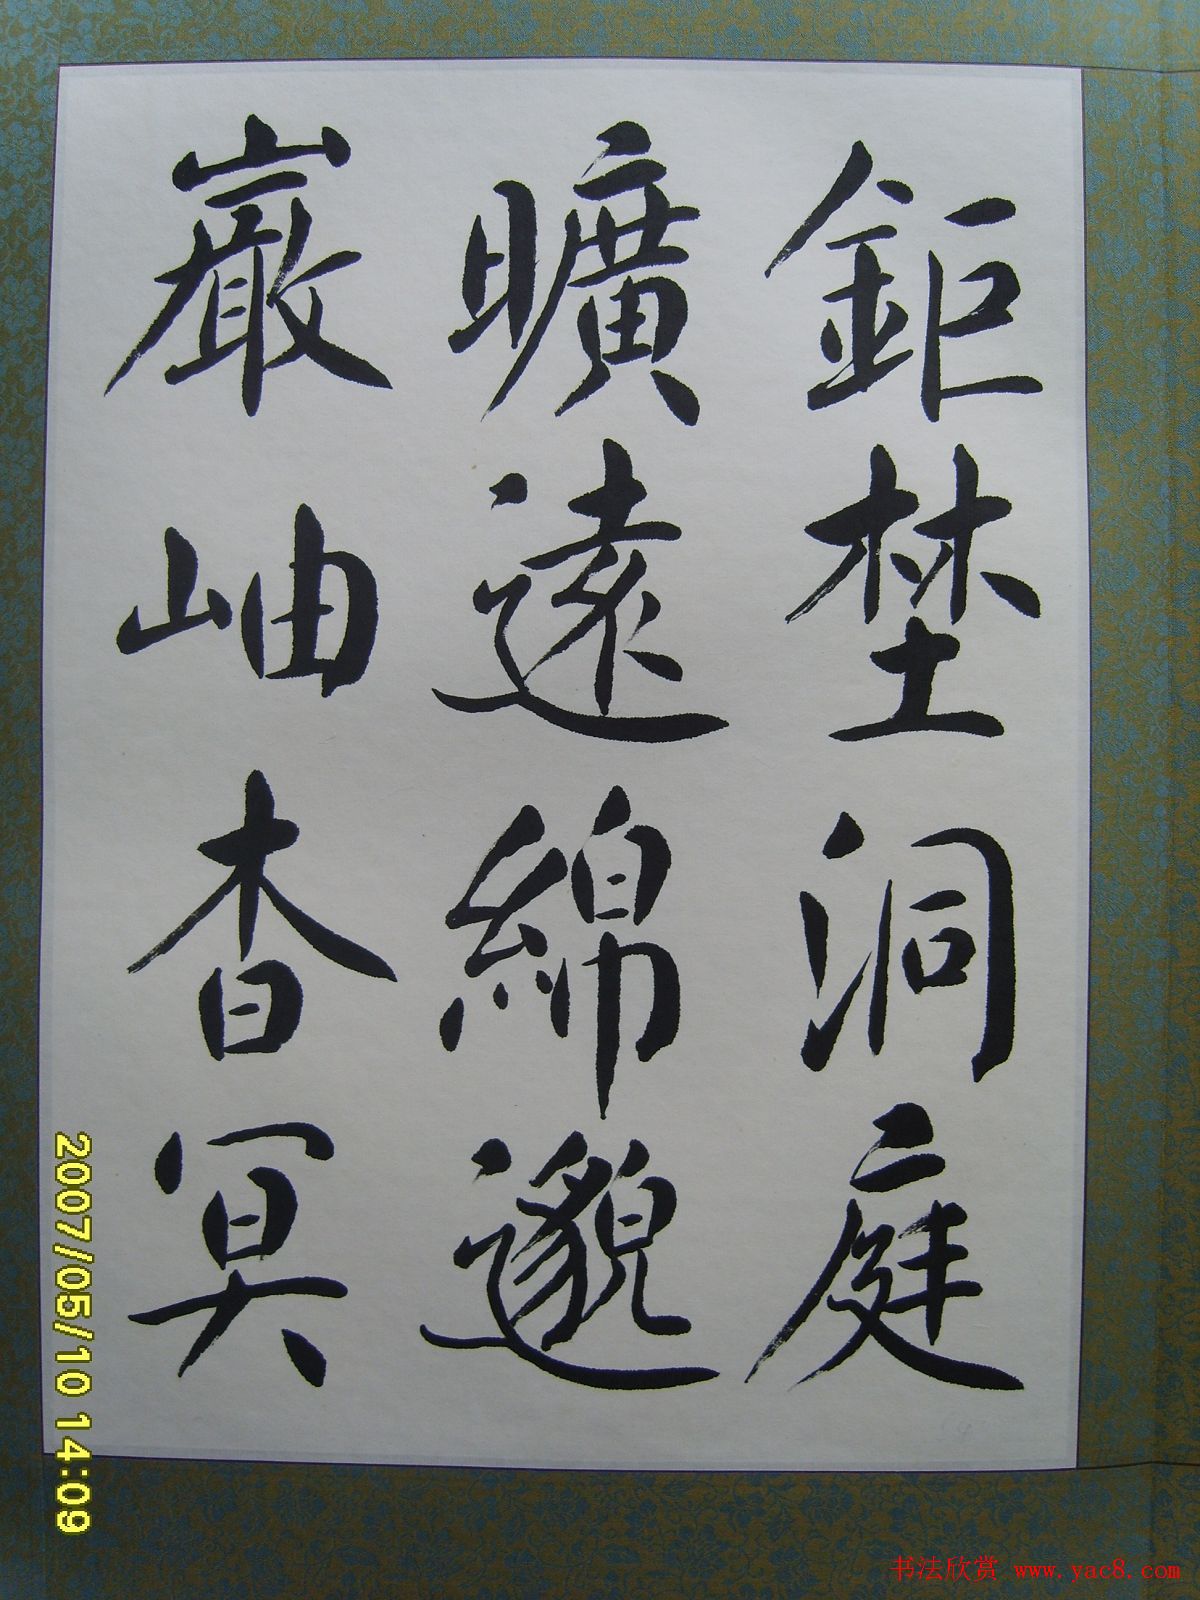 鉅埜洞庭
曠遠綿邈
巖岫杳冥
2007/05/10 14:09
书法欣赏 www.yac8.com